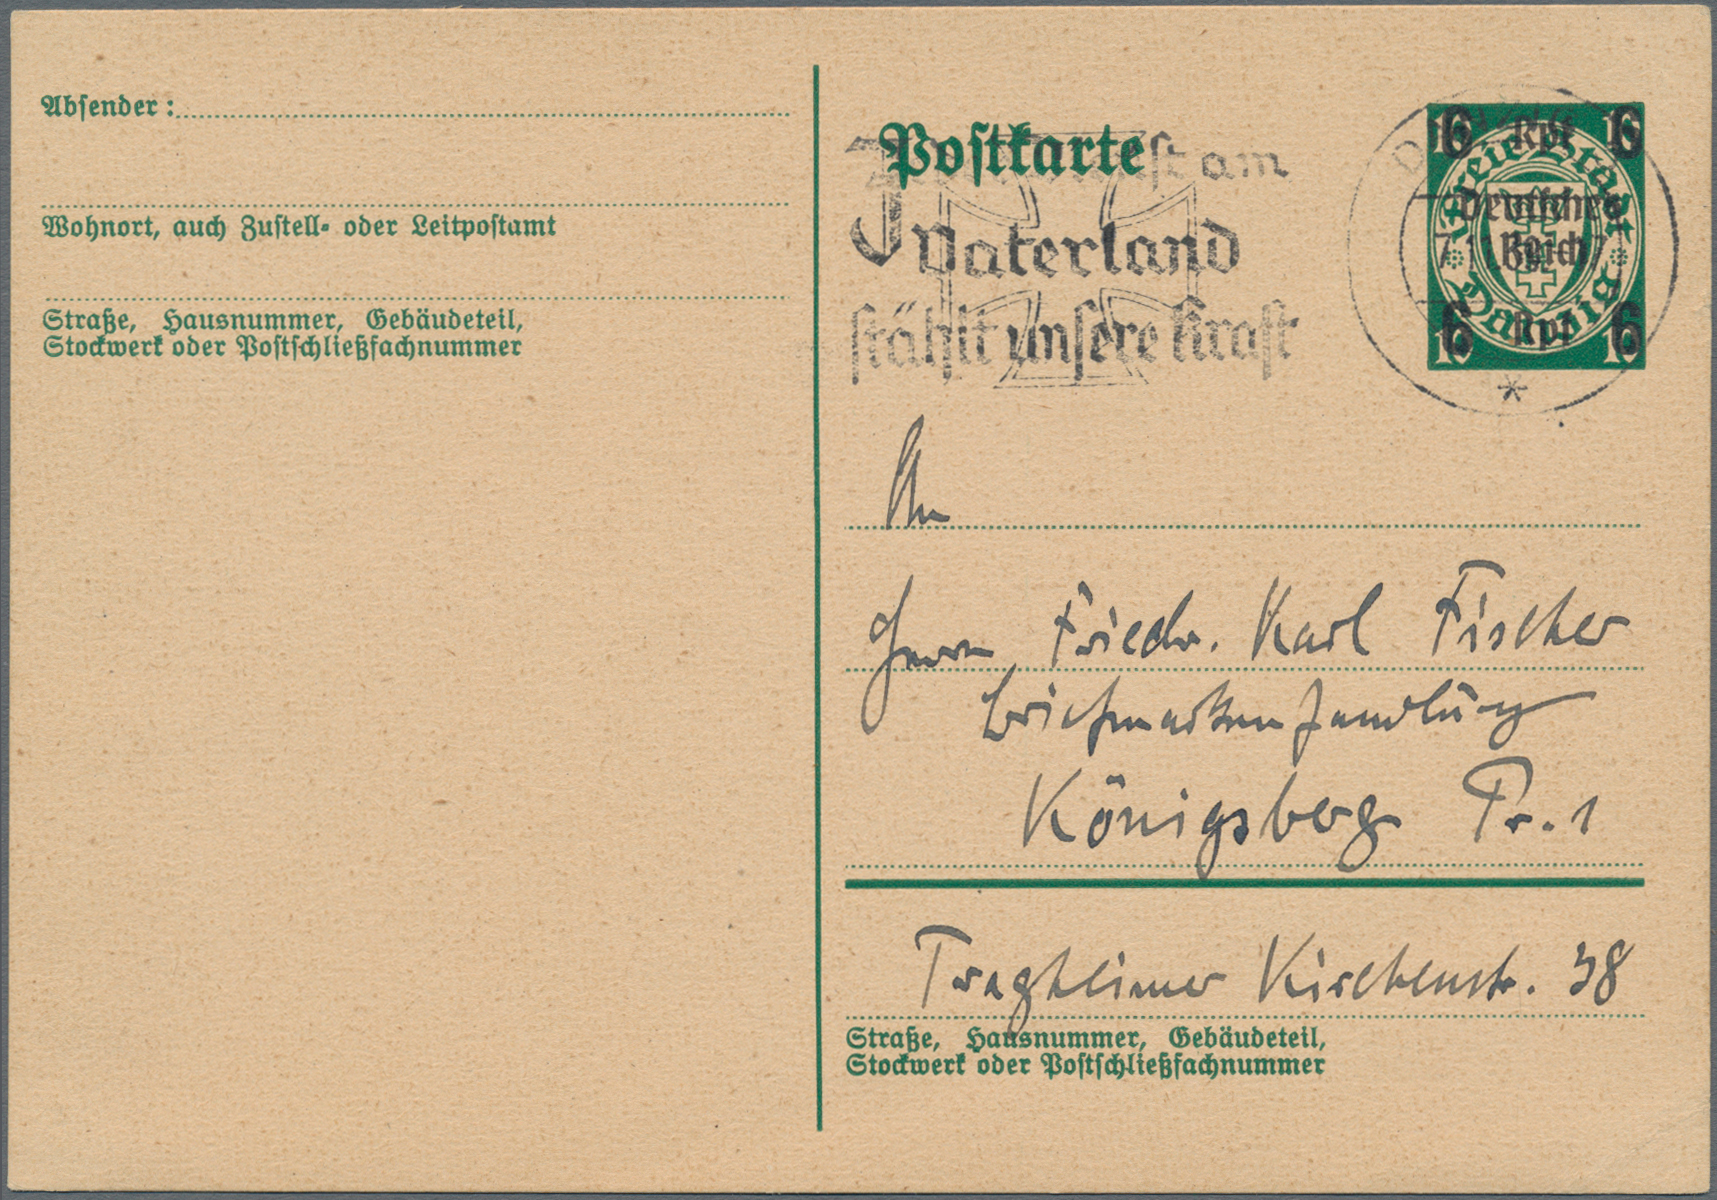 Absender:
Wohnort, auch Zustell- oder Leitpostamt
Straße, Hausnummer, Gebäudeteil,
Stockwerk oder Postschließfachnummer
Postkarte
am
Vaterland
stählt unsere Kraft
6 Rpf 6
Freie Stadt
Deutsches
Reich
Danzig
6 Rpf 6
10 10
An
Herrn Friedr. Karl Fischer
Briefmarkenhandlung
Königsberg Pr. 1
Tragheimer Kirchenstr. 38
Straße, Hausnummer, Gebäudeteil,
Stockwerk oder Postschließfachnummer